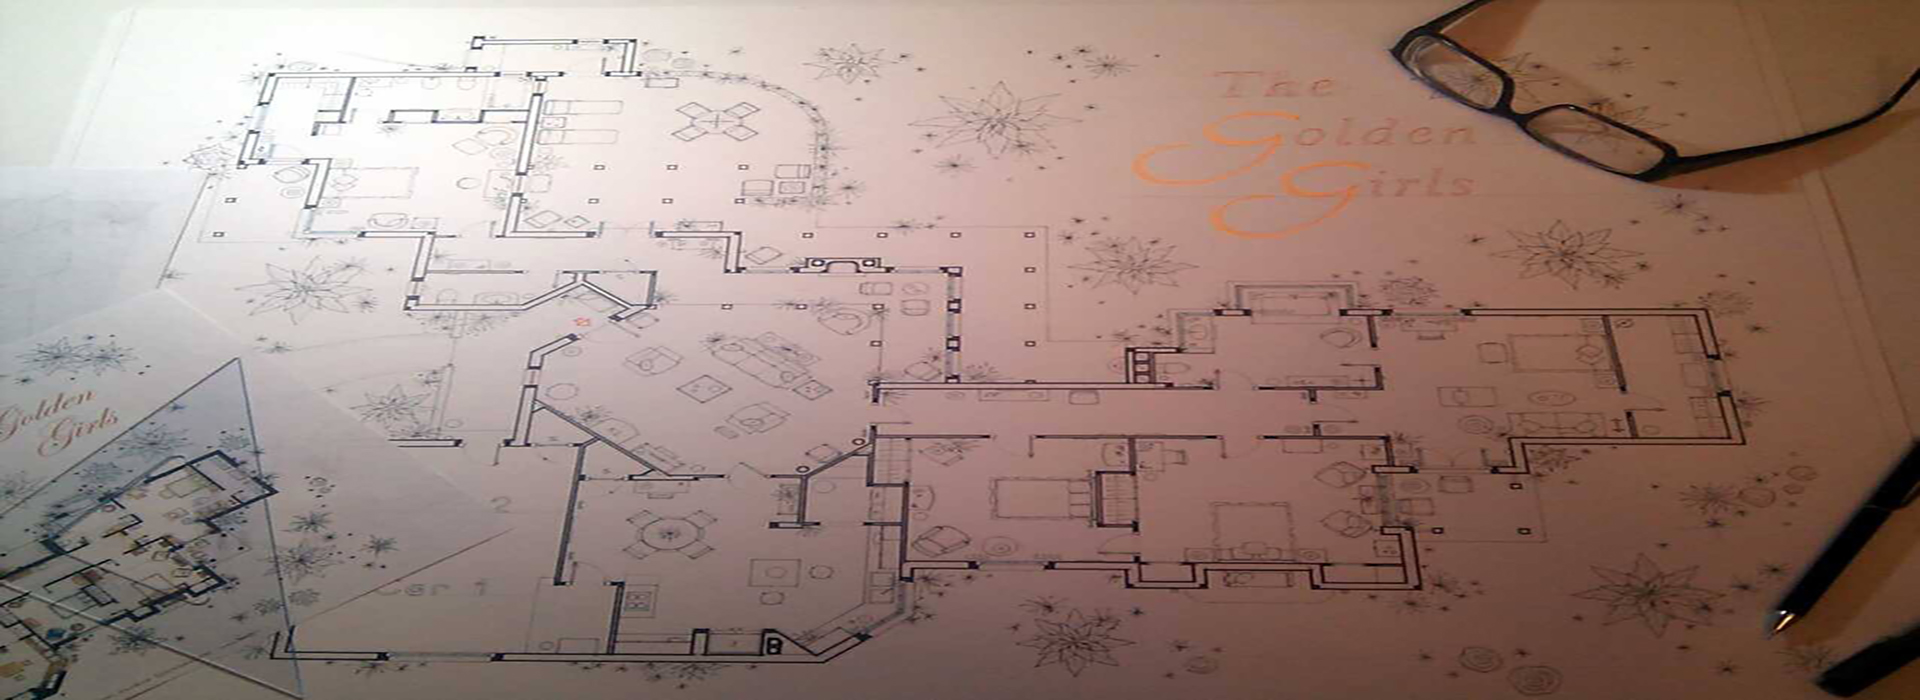 The
Golden
Girls
Golden
Girls
2
Car 1